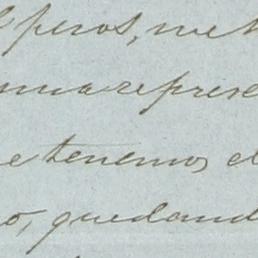 pesos, met
una represe
e tenemos el
o, quedand